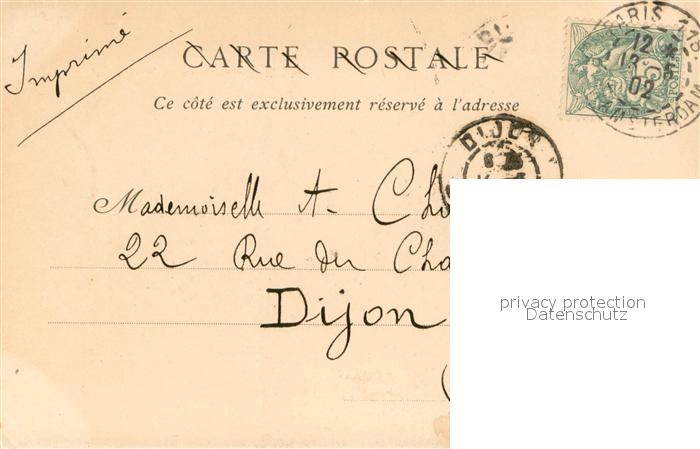 Imprimé
CARTE POSTALE
Ce côté est exclusivement réservé à l'adresse
PARIS
12
02
AMSTERDAM
DIJON
Mademoiselle A.
22 Rue du
Dijon
privacy protection
Datenschutz